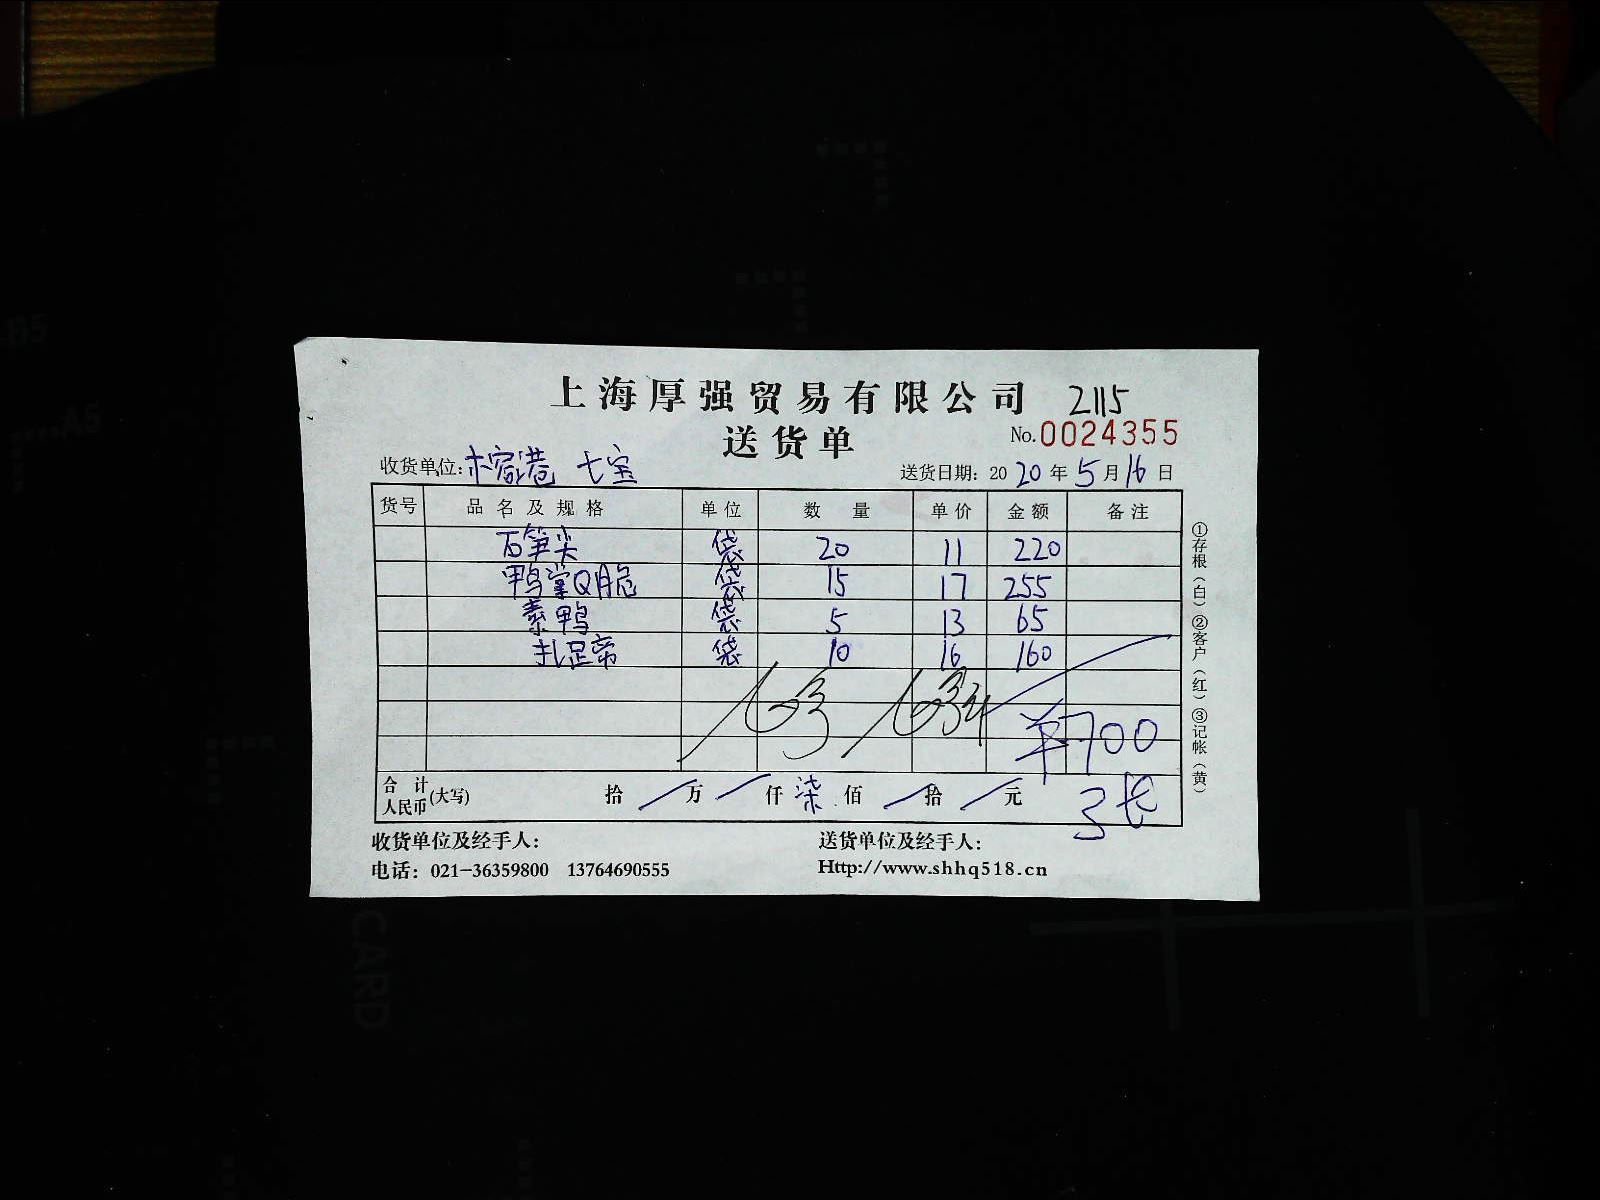 上海厚强贸易有限公司 2115
送货单 No.0024355
收货单位: 榕港 七宝 送货日期: 2020年5月16日
货号 品名及规格 单位 数量 单价 金额 备注
石笋尖 袋 20 11 220
鸭掌Q脆 袋 15 17 255
素鸭 袋 5 13 65
扎足帘 袋 10 16 160
¥700
合计人民币(大写) 拾 / 万 / 仟 柒 佰 / 拾 / 元
收货单位及经手人: 送货单位及经手人:
电话: 021-36359800 13764690555 Http://www.shhq518.cn
①存根(白)②客户(红)③记帐(黄)
CARD